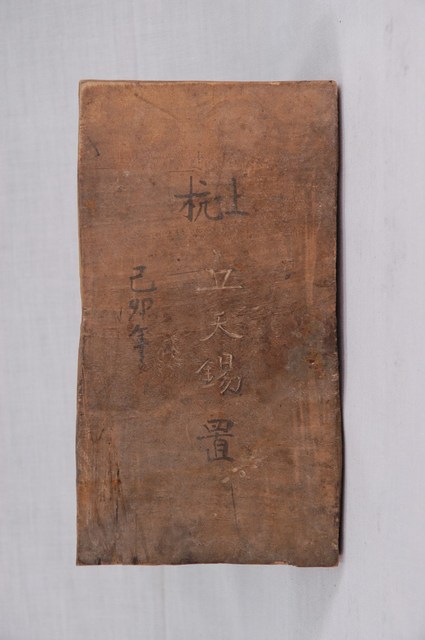 上杭
丘天錫置
己卯年